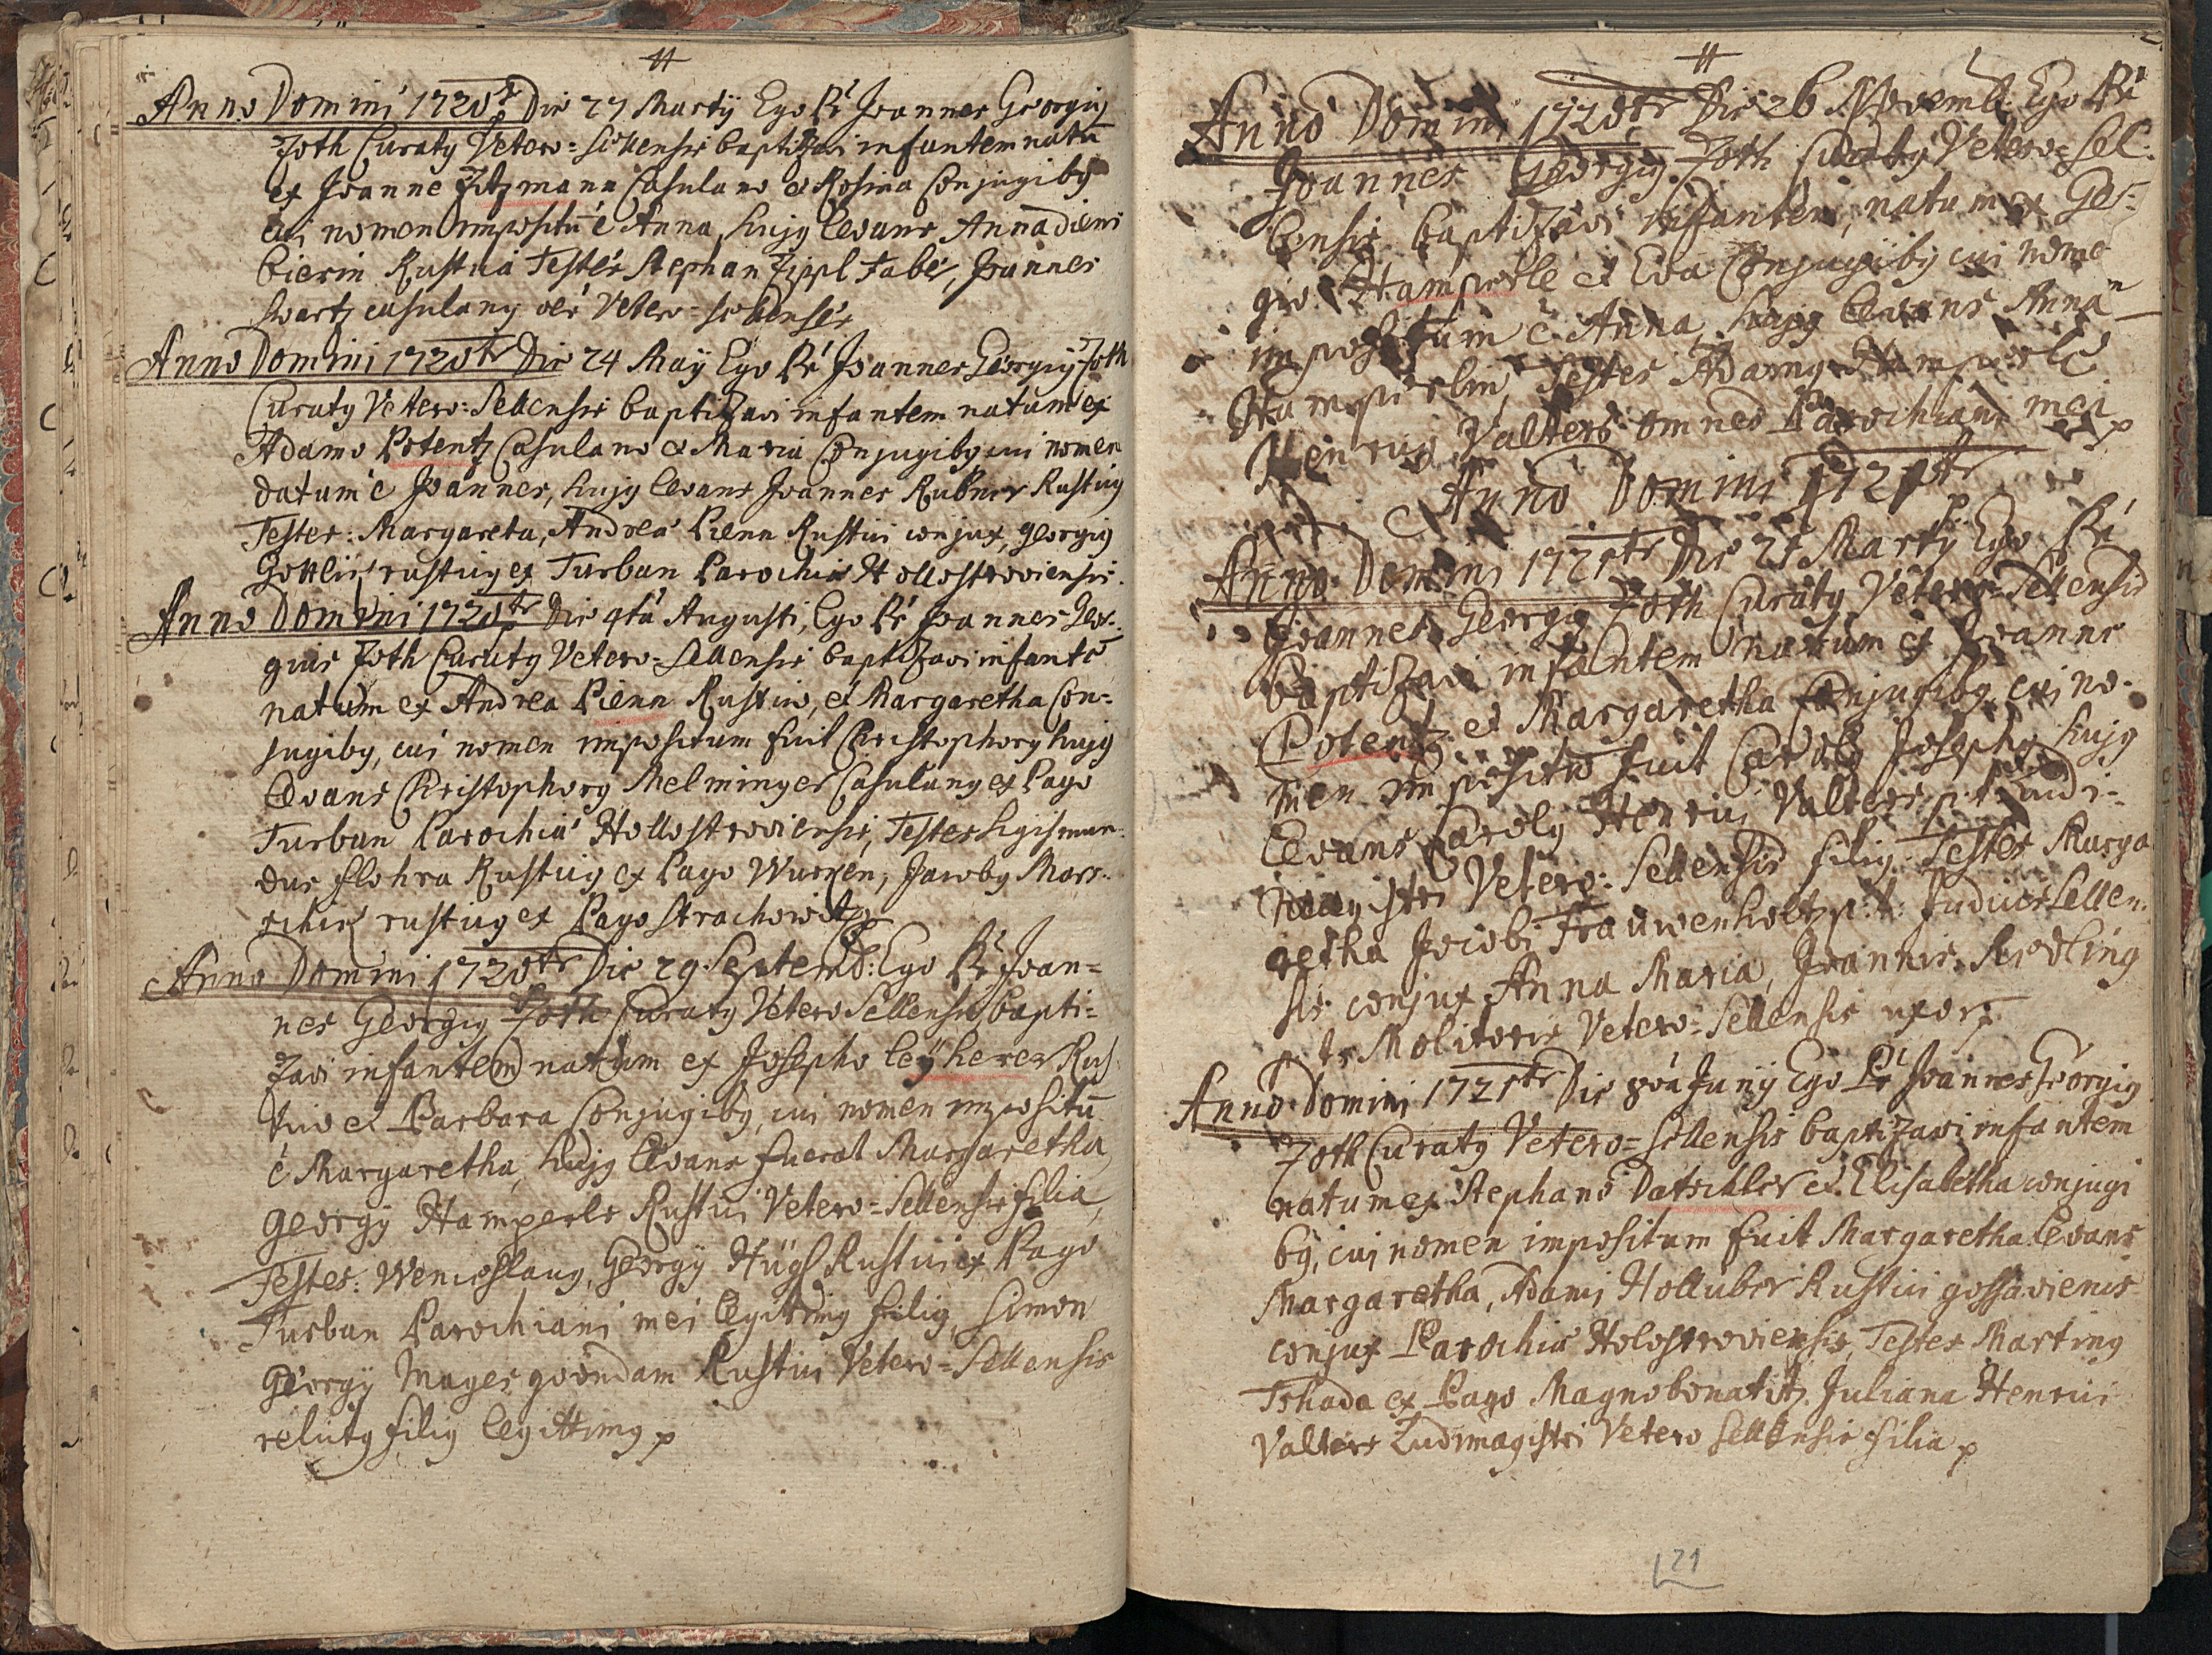 Anno Domini 1720tr Die 27 Martÿ Ego Pr Joannes Georgig
Joth Curatg Vetero=Sellensis baptizavi infantem natū
ex Joanne Zitzmann Casulano et Rosina Conjugibg
cui nomen impositū ē Anna, hujg levans Anna
Rustica Testes Stephan Zippl Faber, Joannes
Swartz casulang oēs Vetero=Sellenses
Anno Domini 1720tr Die 24 Maÿ Ego Pr Joannes Georgig Joth
Curatg Vetero=Sellensis baptizavi infantem natum ex
Adamo Potentz Casulano et Maria Conjugibg cui nomen
datum ē Joannes, hujg levans Joannes Rubner Rusticg
Testes: Margareta, Andreæ Pienn Rustici conjux, Georgig
rusticg ex Turban Parochiæ Hollostroviensis.
Anno Domini 1720tr Die 4ta Augusti, Ego Pr Joannes Geor=
gius Joth Curatg Vetero=Sellensis baptizavi infantē
natum ex Andrea Pienn Rustico, et Margaretha Con=
jugibg, cui nomen impositum fuit Christophorg hujg
levans Christophorg Melminger Casulang ex Pago
Turban Parochiæ Hollostroviensis, Testes Sigismun=
dus Flohra Rusticg ex Pago Wurken, Jacobg Mar=
rusticg ex Pago Strachowitz
Anno Domini 1720tr Die 29 Septemb: Ego Pr Joan=
nes Georgig Joth Curatg Vetero Sellensis bapti=
zavi infantem natum ex Josepho Leÿherer Rus
tico et Barbara Conjugibg, cui nomen impositū
ē Margaretha, hujg levans fuerat Margaretha
Georgÿ Hamperle Rustici Vetero=Sellensis filia,
Testes: Wenceslaug, Georgÿ Hügl Rustici ex Pago
Turban Parochiani mei legittimg filig, Simon
Georgÿ Mages quondam Rustici Vetero=Sellensis
relictg filig legittimg p
Anno Domini 1720tr Die 26 Novemb: Ego Pr
Joannes Georgig Joth Curatg Vetero=Sel=
lensis baptizavi infantem, natum ex Geor=
gio Hamperle et Eva Conjugibg cui nome
impositum ē Anna, hujg levans Anna
Hamperlin, Testes Adamg Hamperle
Henricg Valters omnes Parochiani mei p
Anno Domini 1721tr
Anno Domini 1721tr Die 21 Martÿ Ego Pr
Joannes Georgig Joth Curatg Vetero=Sellensis
baptizavi infantem natum ex Joanne
Potentz et Margaretha Conjugibg cui no=
men impositū fuit Carolg Josephg hujg
levans Carolg Henrici Valters p: t: Ludi=
magistri Vetero=Sellensis filig. Testes Marga
retha Jacobi Frauwenholtz p: t: Judicis Sellen=
sis conjux Anna Maria, Joannis
p: t: Molitoris Vetero=Sellensis uxor p
Anno Domini 1721tr Die 8va Junÿ Ego Pr Joannes Georgig
Joth Curatg Vetero=Sellensis baptizavi infantem
natum ex Stephano Datschler et Elisabetha conjugi
bg, cui nomen impositum fuit Margaretha. levans
Margaretha, Adami Holluber Rustici
conjux Parochiæ Holostroviensis, Testes Marting
Tshada ex Pago Magnobonatitz Juliana Henrici
Valters Ludimagistri Vetero Sellensis filia p
121